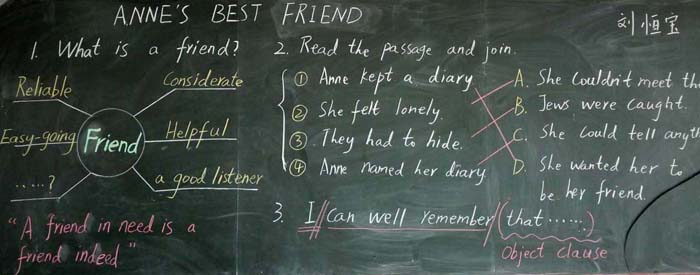 ANNE'S BEST FRIEND
刘恒宝
1. What is a friend?
Reliable
Considerate
Easy-going
Friend
Helpful
......?
a good listener
"A friend in need is a
friend indeed"
2. Read the passage and join.
① Anne kept a diary
② She felt lonely.
③ They had to hide.
④ Anne named her diary
A. She couldn't meet the
B. Jews were caught.
C. She could tell anyth
D. She wanted her to
be her friend.
3. I can well remember (that ......)
Object clause